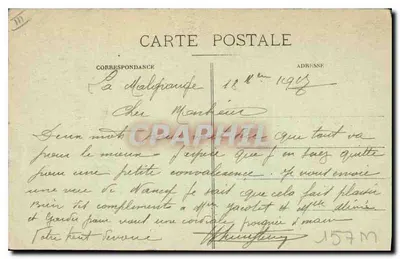 CARTE POSTALE
CORRESPONDANCE
ADRESSE
La Malgrange 18 1915
Cher Monsieur
Deux mots que tout va
pour le mieux J'espère que j'en suis quitte
pour une petite convalescence. Je vous envoie
une vue de Nancy Je sais que cela fait plaisir
Bien des compliments à Mme et Mlle
et gardez pour vous une cordiale poignée de main
Votre tout dévoué
CPAPHIL
157M